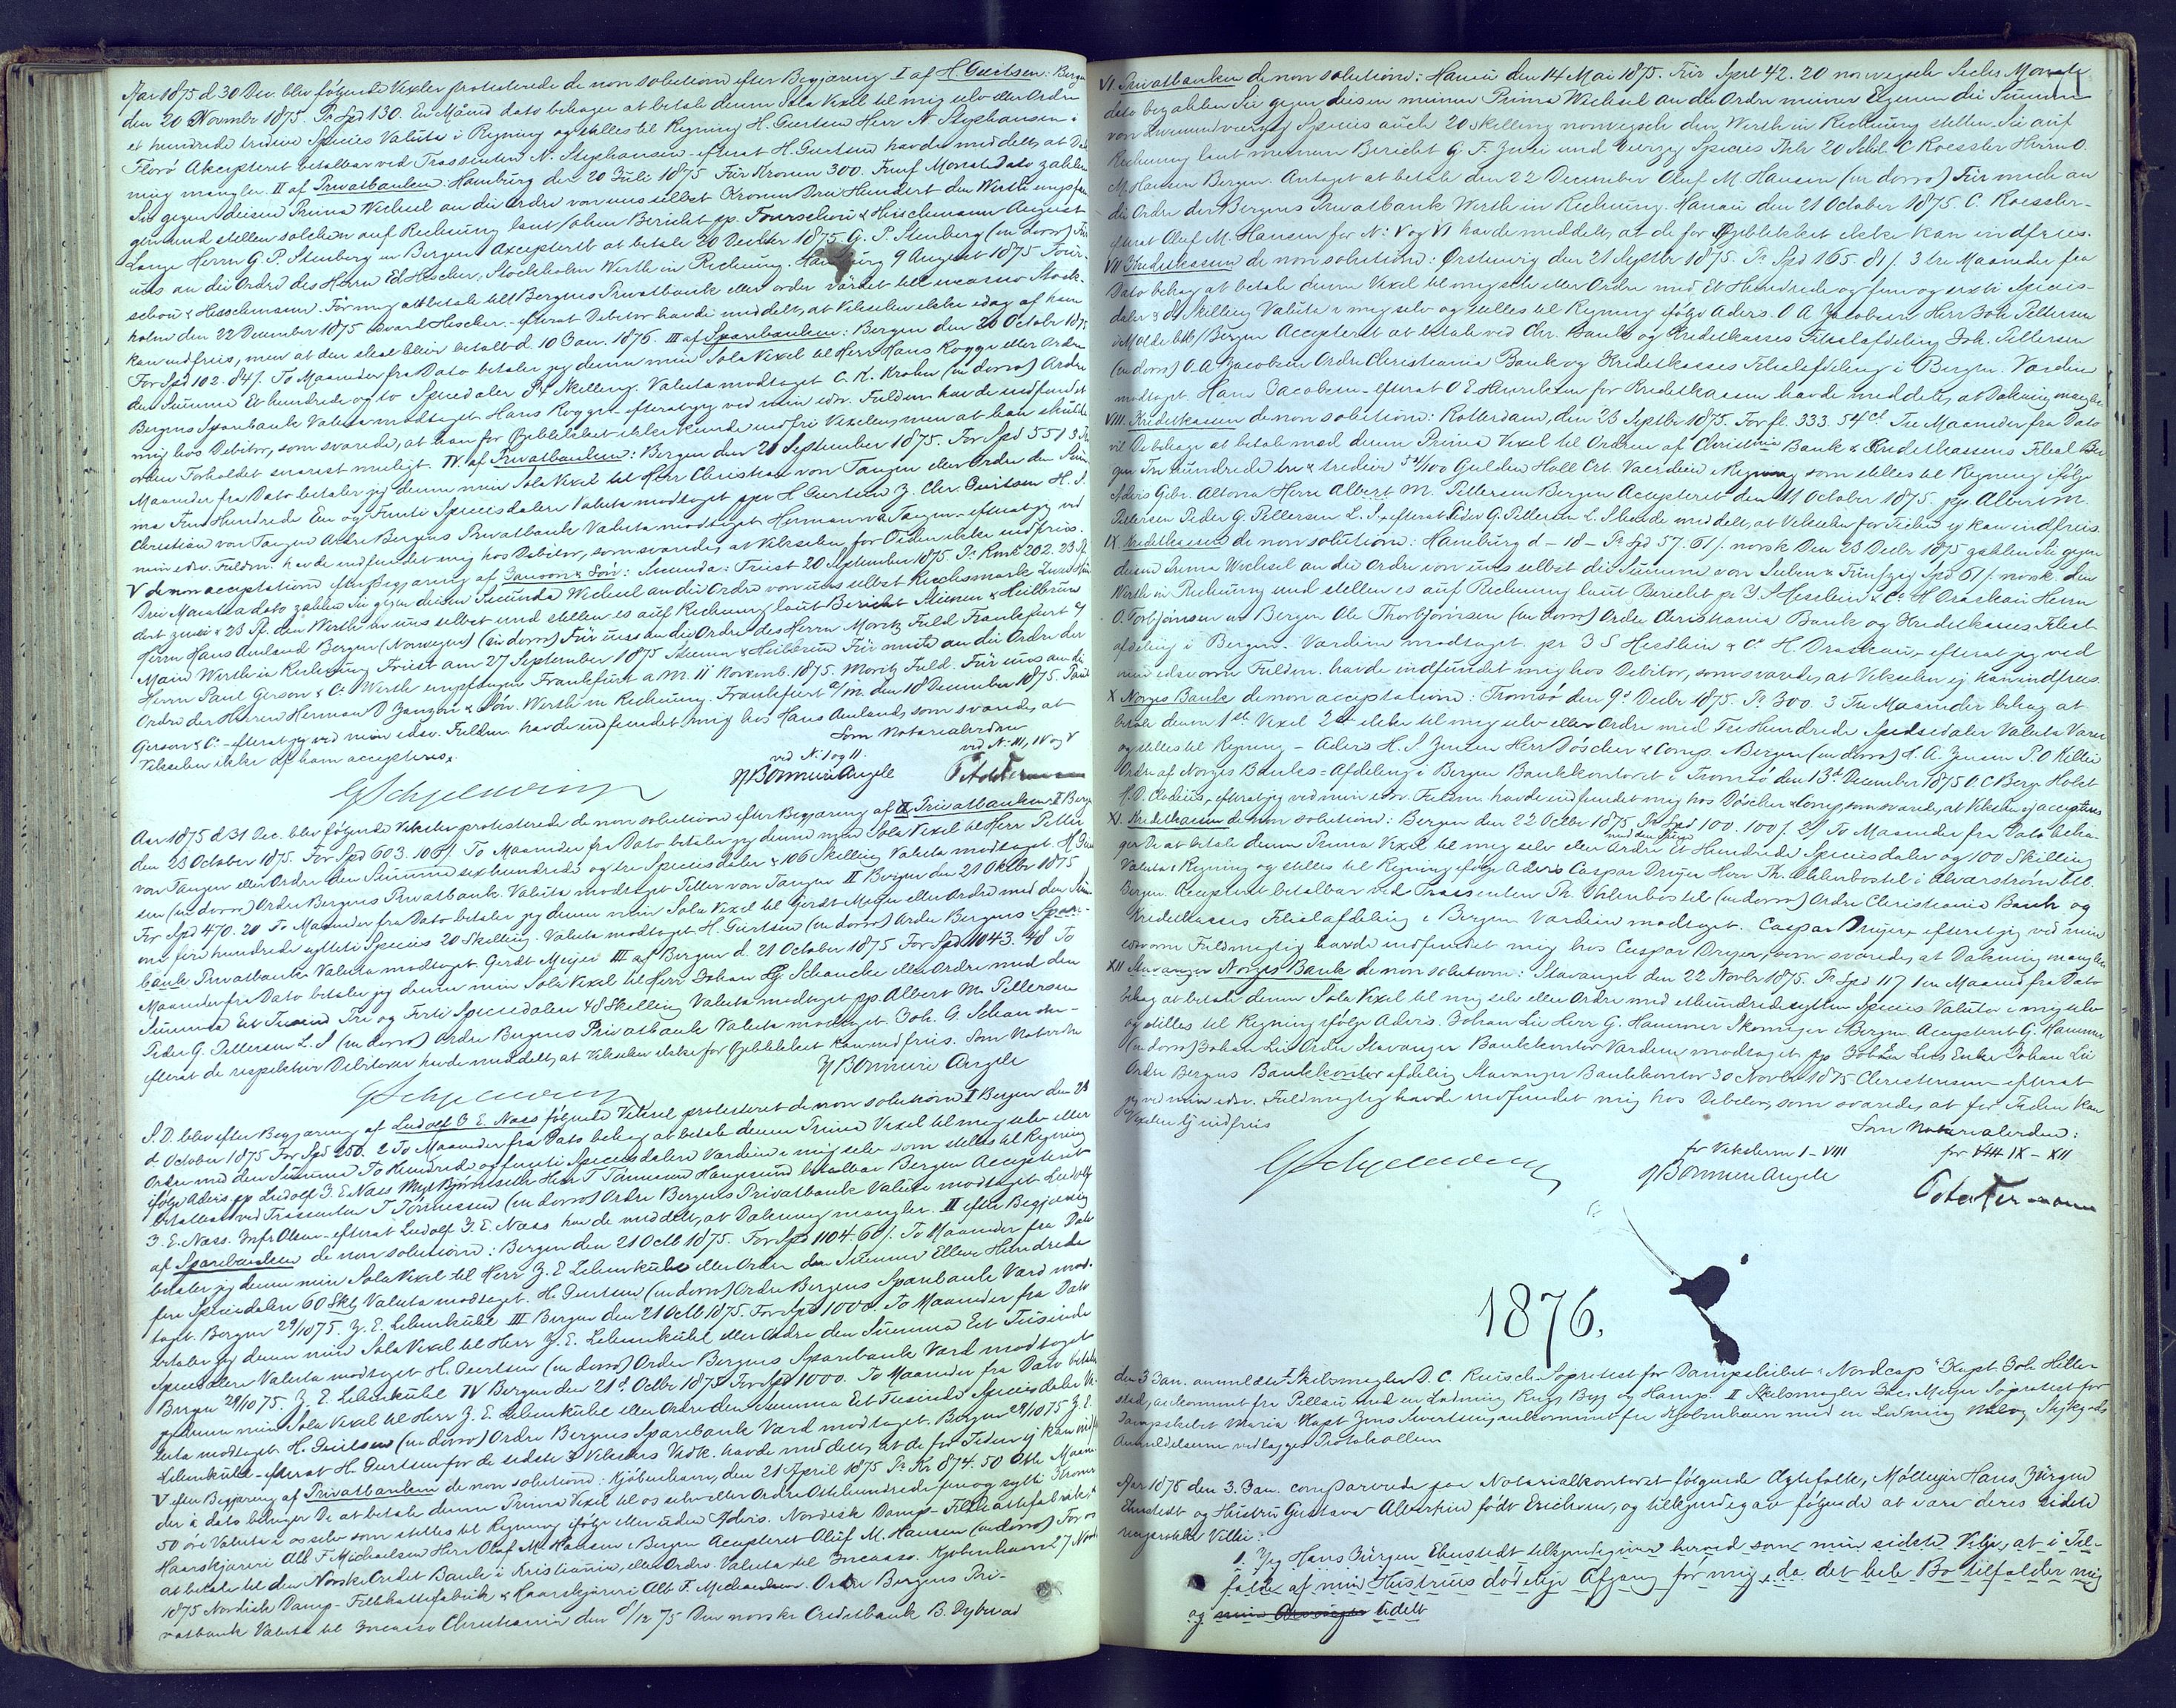 Aar 1875 d. 30 Dec. blev følgende Vexler protesterede de non solutione efter Begjæring I af H. Geertsen: Bergen
den 20 November 1875. Pr Spd 130. En Maaned dato behager at betale denne Sola Vexel til mig selv eller Ordre
et hundrede tredive Species Valuta i Regning og stilles til Regning H. Geertsen Herr N. Stephansen i
Florø Akcepteret betalbar ved Trassenten N. Stephansen - efterat H. Geertsen havde meddelt, at Dæk-
ning mangler. II af Privatbanken: Hamburg den 20 Juli 1875 Für Kronen 300. Fünf Monate Dato zahlen
Sie gegen diesen Prima Wechsel an die Ordre von uns selbst Kronen Drei Hundert den Werth empfan-
gen und stellen solchen auf Rechnung laut/ohne Bericht pp. Fourschou & Hirschmann August
Lange Herrn G. P. Stenberg in Bergen Accepterth at betale 20 December 1875 G. P. Stenberg (in dorso) Für
uns an die Ordre des Herrn Ed. Hescher, Stockholm Werth in Rechnung. Hamburg 9 August 1875 Four-
schou & Hirschmann. För mig att betale till Bergens Privatbank eller order Värdet till incasso Stock-
holm den 22 December 1875 Edvard Hescher. - efterat Debitor havde meddelt, at Vekselen ikke idag af ham
kan indfries, men at den skal blive betalt d. 10 Jan. 1876. III af Sparebanken: Bergen den 20 Octobr 1875
For Spd 102. 84 ß. To Maaneder fra Dato betaler jeg denne min Sola Vexel til Herr Hans Kogge eller Ordre
den Summa Et hundrede og to Speciedaler 84 Skelling. Valuta modtaget C. K. Krohn (in dorso) Ordre
Bergens Sparebank Valuta modtaget Hans Kogge - efterat jeg ved min edsv. Fuldm. havde indfundet
mig hos Debitor, som svarede, at han for Øieblikket ikke kunde indfri Vexelen, men at han skulde
ordne Forholdet snarest muligt. IV. af Privatbanken: Bergen den 21 September 1875. For Spd 551 3 Tre
Maaneder fra Dato betaler jeg denne min Sola Vexel til Herr Christian von Tangen eller Ordre den Sum-
ma Fem Hundrede Een og Femti Speciesdaler Valuta modtaget ppr H. Geertsen Z. Chr. Geertsen H. S.
Christian von Tangen Ordre Bergens Privatbank Valuta modtaget Herman v. Tangen - efterat jeg ved
min edsv. Fuldm. havde indfundet mig hos Debitor, som svarede, at Vekselen for Tiden ikke indfries.
V de non acceptatione efter Begjæring af Janson & Søn: Secunda: Triest 20 September 1875. Pr Rmk 202. 23 Pf.
Drei Monate a dato zahlen Sie gegen diesen Secunda Wechsel an die Ordre von uns selbst Reichsmark Zwei Hun-
dert zwei & 23 Pf. den Werth in uns selbst und stellen es auf Rechnung laut Bericht Stienen & Heilbrun
Herrn Hans Amland Bergen (Norwegen) (in dorso) Für uns an die Ordre des Herrn Moritz Fuld Frankfurt a/
Main Werth in Rechnung Triest am 27 September 1875 Stienen & Heilbrun Für mich an die Ordre der
Herrn Paul Gerson & Co Werth empfangen Frankfurt a M. 11 Novemb. 1875. Moritz Fuld. Für uns an die
Ordre der Herren Herman D Janson & Søn. Werth in Rechnung. Frankfurt a/M. den 18 December 1875. Paul
Gerson & Co - efterat jeg ved min edsv. Fuldm. havde indfundet mig hos Hans Amland, som svarede, at
Vekselen ikke af ham accepteres.
Som Notarialvidne
ved N: I og II. ved N: III, IV og V
Aar 1875 d. 31 Dec. blev følgende Veksler protesterede de non solutione efter Begjæring af Privatbanken I Bergen
den 23 October 1875. For Spd 603. 106 ß. To Maaneder fra Dato betaler jeg denne min Sola Vexel til Herr Petter
von Tangen eller Ordre den Summa sexhundrede og tre Speciesdaler & 106 Skelling Valuta modtaget. H. Geert-
sen (in dorso) Ordre Bergens Privatbank. Valuta modtaget Petter von Tangen II Bergen den 21 Oktbr 1875
For Spd 470. 20 To Maaneder fra Dato betaler jeg denne min Sola Vexel til Gerdt Meyer eller Ordre med den Sum-
ma fire hundrede sytti Species 20 Skelling. Valuta modtaget H. Geertsen (in dorso) Ordre Bergens Spare-
bank Privatbank Valuta modtaget. Gerdt Meyer III af Bergen d. 21 October 1875 For Spd 1043. 48 To
Maaneder fra Dato betaler jeg denne min Sola Vexel til Herr Johan G. Schancke eller Ordre med den
Summa Eet Tusind Tre og Forti Speciedaler 48 Skelling Valuta modtaget pp. Albert M. Pettersen
Peder G. Pettersen L. S. (in dorso) Ordre Bergens Privatbank Valuta modtaget. Joh. G. Schancke -
efterat de respektive Debitorer havde meddelt, at Vekslen ikke for Øieblikket kan indfries. Som Notarvidne
S. D. blev efter Begjæring af Ludolf J. E. Næss følgende Veksel protesteret de non solutione I Bergen den 23
d October 1875 For Spd 250. 2 To Maaneder fra Dato behag at betale denne Prima Vexel til mig selv eller
Ordre med den Summa To Hundrede og femti Speciesdaler Værdien i mig selv som stilles til Regning
ifølge Advis. pp Ludolf J. E. Næss Myr Bjørnseth Herr T. Tønnesen Haugesund betalbar Bergen Accepteret
betalbar ved Trassenten T Tönnessen (in dorso) Ordre Bergens Privatbank Valuta modtaget Ludolf
J. E. Næss. Olsen - efterat Ludolf J. E. Næss havde meddelt, at Dækning mangler. II efter Begjæring
af Sparebanken de non solutione: Bergen den 21 Octb 1875. For Spd 1104. 60 ß. To Maaneder fra Dato
betaler jeg denne min Sola Vexel til Herr Z. E. Lehmkuhl eller Ordre den Summa Elleve Hundrede
fire Speciesdaler 60 Sk, Valuta modtaget. H. Geertsen (in dorso) Ordre Bergens Sparebank Værd mod-
taget. Bergen 29/10 75. Z. E. Lehmkuhl III Bergen den 21 Octb 1875. For Spd 1000. To Maaneder fra Dato
betaler jeg denne min Sola Vexel til Herr Z. E. Lehmkuhl eller Ordre den Summa Eet Tusinde
Speciesdaler Valuta modtaget H. Geertsen (in dorso) Ordre Bergens Sparebank Værd modtaget
Bergen 29/10 75. Z. E. Lehmkuhl IV Bergen den 21d. Octbr 1875 For Spd 1000. To Maaneder fra Dato betaler
jeg denne min Sola Vexel til Herr Z. E. Lehmkuhl eller Ordre den Summa Eet Tusinde Speciesdaler Va-
luta modtaget. H. Geertsen (in dorso) Ordre Bergens Sparebank Værd modtaget. Bergen 29/10 75 Z. E.
Lehmkuhl - efterat H. Geertsen for de sidste 3 Vekslers Vedk. havde meddelt, at de for Tiden ej kan indfries.
V efter Begjæring af Privatbanken de non solutione: Kjøbenhavn, den 21 April 1875 Pr Kr 874. 50 Otte Maane-
der à dato behager De at betale denne Prima Vexel til os selv eller Ordre Ottehundrede fire og sytti Kroner
50 øre Valuta i os selv som stilles til Regning ifølge eller uden Advis. Nordisk Damp-Filthattefabrik &
Haarskjæreri Alb F. Michaelsen Herr Oluf M. Hansen i Bergen Accepteret Oluf M. Hansen (in dorso) For os
at betale til den Norske Credit Bank i Kristiania, eller Ordre. Valuta til Incasso. Kjøbenhavn 27 Novbr
1875 Nordisk Damp-Filthattefabrik & Haarskjæreri Alb F. Michaelsen. Ordre Bergens Pri-
vatbank Valuta til Incasso Christiania den 8/12 75 Den norske Creditbank B. Dybwad
VI. Privatbanken de non solutione: Hanau den 14 Mai 1875. Für Spect 42. 20 norwegisch Sechs Monate
dato bezahlen Sie gegen diesen meinen Prima Wechsel an die Ordre meiner Eigenen die Summe
von Zweiundvierzig Species auch 20 Skelling norwegisch den Werth in Rechnung stellen Sie auf
Rechnung laut meinem Bericht G. F. Zwei und Vierzig Species Thlr 20 Skil. C Roessler Herrn O.
M. Hansen Bergen. Antaget at betale den 22 December Oluf M. Hansen (in dorso) Für mich an
die Ordre der Bergens Privatbank Werth in Rechnung. Hanau den 21 October 1875. C. Roessler -
efterat Oluf M. Hansen for N: V og VI havde meddelt, at de for Øieblikket ikke kan indfries.
VII Kreditkassen de non solutione: Ørstenvig den 21 Septbr 1875. Pr Spd 165. 81 ß. 3 tre Maaneder fra
Dato behag at betale denne Vexel til mig selv eller Ordre med Et Hundrede og fem og sexti Species-
daler & 81 Skilling Valuta i mig selv og stilles til Regning ifølge Advis. O A Jacobsen Herr Joh Pettersen
i Molde btb/Bergen Accepteret at betale ved Chr. Bank og Kreditkasses Filialafdeling Joh. Pettersen
(in dorso) O. A Jacobsen Ordre Christiania Bank og Kreditkasses Filialafdeling i Bergen. Værdien
modtaget. Hans Jacobsen - efterat O E Henriksen for Kreditkassen havde meddelt, at Dækning mangler.
VIII. Kreditkassen de non solutione: Rotterdam, den 23 Septbr 1875. For fl. 333. 54 ct. Tre Maaneder fra Dato
vil De behage at betale med denne Prima Vexel til Ordren af Christinia Bank & Kreditkassens Filial Ber-
gen Tre hundrede tre & tredive 54/100 Gulden Holl Crt. Værdien i Regning som stilles til Regning ifølge
Advis Gebr. Altona Herr Albert M. Pettersen Bergen Accepteret den 11 October 1875. pp. Albert M.
Pettersen Peder G. Pettersen L. S. - efterat Peder G. Pettersen L. S havde meddelt, at Vekselen for Tiden ej kan indfries.
IX Kreditkassens de non solutione: Hamburg d - 18 - Pr Spd 57. 61 ß. norsk Den 23 Decbr 1875 zahlen Sie gegen
diesen Prima Wechsel an die Ordre von uns selbst die Summe von Sieben & Fünfzig Spd 61 ß. norsk. den
Werth in Rechnung und stellen es auf Rechnung laut Bericht pr J S Hesslein & Co H Draskau Herrn
O. Torbjörnsen in Bergen Ole Thorbjørnsen (in dorso) Ordre Christiania Bank og Kreditkasses Filial-
afdeling i Bergen. Værdien modtaget. pr J S Hesslein & Co H. Draskau - efterat jeg ved
min edsvorn Fuldm. havde indfundet mig hos Debitor, som svarede, at Vekselen ej kan indfries.
X Norges Bank de non acceptatione: Tromsø den 9de Decbr 1875. Pr 300. 3 Tre Maaneder behag at
betale denne 1ste Vexel 2den ikke til mig selv eller Ordre med Tre Hundrede Speciedaler Valuta Varer
og stilles til Regning - Advis H. S. Jensen Herr Döscher & Comp. Bergen (in dorso) H. A. Jensen P. O Killie
Ordre af Norges Banks-Afdeling i Bergen Bankkontoret i Tromsø den 13d December 1875 O. C Berg Holst
H. D. Clodius - efterat jeg ved min edsv. Fuldm. havde indfundet mig hos Döscher & Comp, som svarede, at Vekselen ej accepteres
XI. Kreditkassen de non solutione: Bergen den 22 Octbr 1875 Pr Spd 100. 100 ß. 2/ To Maaneder fra Dato beha-
ger De at betale denne Prima Vexel til mig selv eller Ordre med den Summa Et Hundrede Speciesdaler og 100 Skilling
Valuta i Regning og stilles til Regning ifølge Advis Caspar Dreyer Herr Th. Ahlenbostel i Alverstrøm btb.
Bergen. Accepteret betalbar ved Trassenten Th. Valenbostel (in dorso) Ordre Christiania Bank og
Kreditkasses Filialafdeling i Bergen Værdien modtaget. Caspar Dreyer - efterat jeg ved min
edsvorne Fuldmægtig havde indfundet mig hos Caspar Dreyer, som svarede, at Dækning mangler.
XII Stavanger Norges Bank de non solutione: Stavanger den 22 Novbr 1875. Pr Spd 117 1 en Maaned fra Dato
behag at betale denne Sola Vexel til mig selv eller Ordre med ethundredesytten Species Valuta i mig selv
og stilles til Regning ifølge Advis. Johan Lie Herr G. Hammer Skomager i Bergen. Accepteret G. Hammer
(in dorso) Johan Lie Ordre Stavanger Bankkontor Værdien modtaget pp Johan Lies Enke Johan Lie
Ordre Bergens Bankkontor afdeling Stavanger Bankkontor 30 Novbr 1875 Christensen - efterat
jeg ved min edsv. Fuldmægtig havde indfundet mig hos Debitor, som svarede, at for Tiden kan
Vexelen ej indfries
Som Notarialvidne:
for Vekslerne I - VIII for VIII IX - XII
1876.
den 3 Jan. anmeldte I Skibsmægler D. C. Kuisch Søprotest for Dampskibet "Nordcap" Kapt Joh. Hille-
stad, ankommet fra Pillau med en Ladning Rug, Byg og Hamp. II Skibsmægler Meyer Søprotest for
Dampskibet Maria Kapt Jens Sivertsen, ankommet fra Kjøbenhavn med en Ladning Stykgods
Anmeldelserne vedlægges Protokollen
Aar 1876 den 3. Jan. comparerede paa Notarialkontoret følgende Ægtefolk, Møllejer Hans Jürgen
Ehmstedt og Hustru Gustava Albertine født Erichsen, og tilkjendegav følgende at være deres sidste
uryggelige Villie:
1. Jeg Hans Jürgen Ehmstedt tilkjendegiver herved som min sidste Vilje, at i Til-
fælde af min Hustrus dødelige Afgang før mig, da det hele Bo tilfalder mig
og udelt